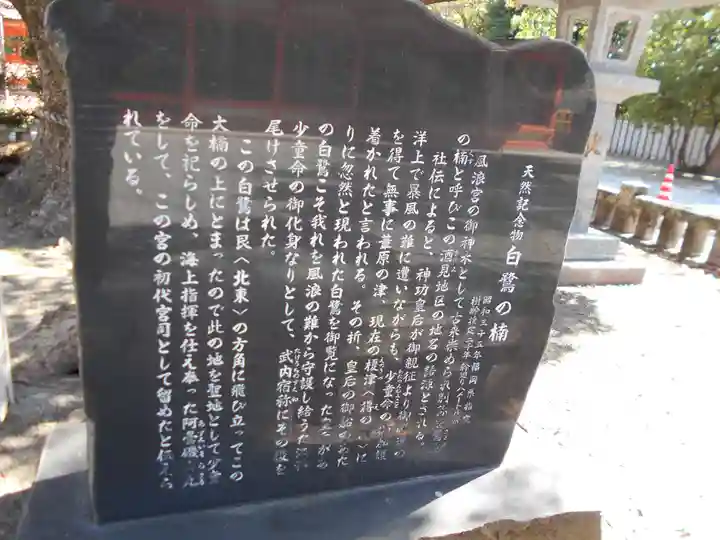 天然記念物 白鷺の楠
昭和三十五年福岡県指定
風浪宮の御神木として古来崇められ
の楠と呼びこの酒見地区の地名の
とされる。
社伝によると、神功皇后が御親征より
洋上で暴風の難に遭いながらも、少童命の
を得て無事に葦原の津、現在の榎津
に
着かれたと言われる。その折、皇后の御船の
りに忽然と現われた白鷺を御覧になった
の白鷺こそ我れを風浪の難から守護し給う
少童命の御化身なりとして、武内宿祢にその後を
尾けさせられた。
この白鷺は艮〈北東〉の方角に飛び立ってこの
大楠の上にとまったので此の地を聖地として少童
命を祀らしめ、海上指揮を仕え奉った阿曇磯
をして、この宮の初代宮司として留めたと伝えら
れている。